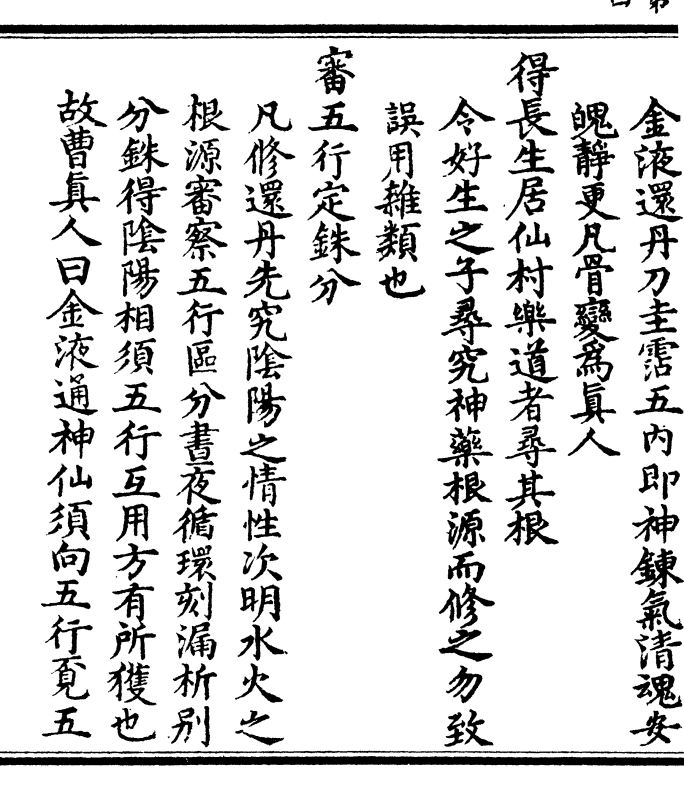 金液還丹刀圭霑五內即神鍊氣清魂安
魄靜更凡骨變爲眞人
得長生居仙村樂道者尋其根
令好生之子尋究神藥根源而修之勿致
誤用雜類也
審五行定銖分
凡修還丹先究陰陽之情性次明水火之
根源審察五行區分晝夜循環刻漏析别
分銖得陰陽相須五行互用方有所獲也
故曹眞人曰金液通神仙須向五行覔五